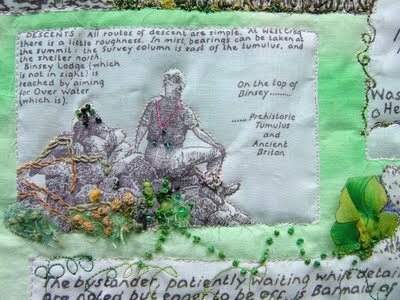 DESCENTS : All routes of descent are simple. At West Crag
there is a little roughness. In mist, bearings can be taken at
the summit : the survey column is east of the tumulus, and
the shelter north.
Binsey Lodge (which
is not in sight) is
reached by aiming
for Over Water
(which is).
On the top of
Binsey.........
...... Prehistoric
Tumulus
and
Ancient
Briton
Was
He
The bystander, patiently waiting whilst detail
are noted but eager to be off, is Barmaid of